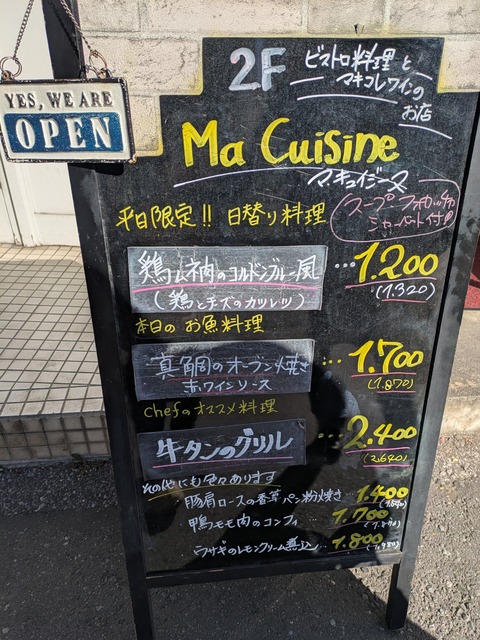 YES, WE ARE
OPEN
2F
ビストロ料理と
マキコレワインの
お店
Ma Cuisine
マ・キュイジーヌ
平日限定!! 日替り料理
スープ フォカッチャ
シャーベット付
鶏ムネ肉のコルドンブルー風
(鶏とチーズのカツレツ)
…1.200
(1.320)
本日の お魚料理
真鯛のオーブン焼き
赤ワインソース
…1.700
(1.870)
Chefのオススメ料理
牛タンのグリル
…2.400
(2.640)
その他にも色々あります
豚肩ロースの香草パン粉焼き 1.400
(1.540)
鴨モモ肉のコンフィ 1.700
(1.870)
ウサギのレモンクリーム煮込 1.800
(1.980)